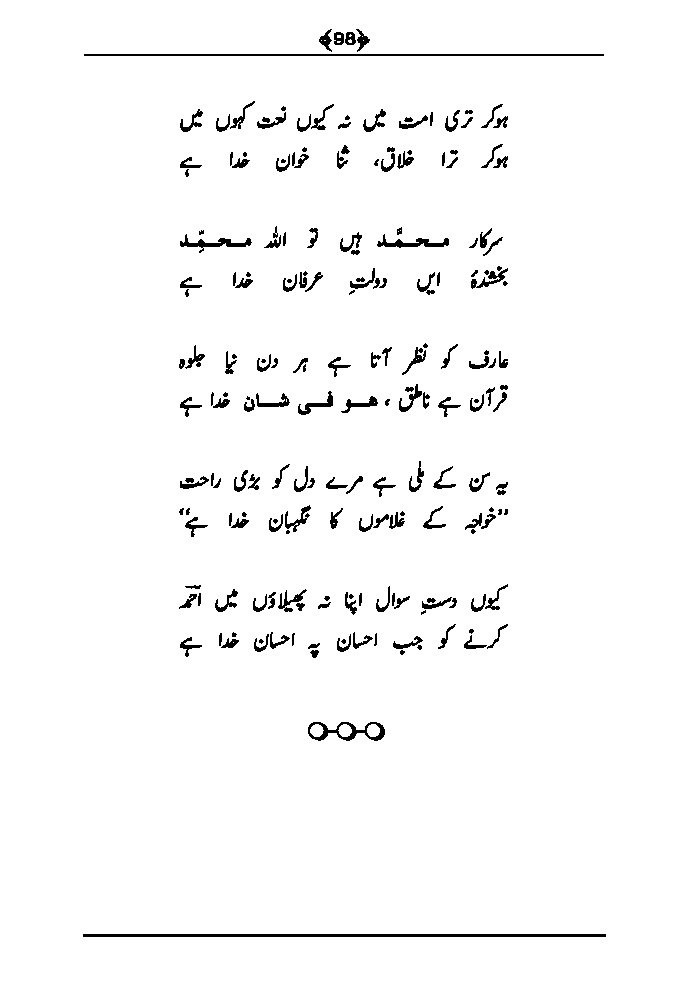 ﴿98﴾
ہوکر تری امت میں نہ کیوں نعت کہوں میں
ہوکر ترا خلاق، ثنا خوان خدا ہے
سرکار محمَّد ہیں تو اللہ محمِّد
بخشندۂ ایں دولتِ عرفان خدا ہے
عارف کو نظر آتا ہے ہر دن نیا جلوہ
قرآن ہے ناطق، هو فی شان خدا ہے
یہ سن کے ملی ہے مرے دل کو بڑی راحت
”خواجہ کے غلاموں کا نگہبان خدا ہے“
کیوں دستِ سوال اپنا نہ پھیلاؤں میں احمدؔ
کرنے کو جب احسان پہ احسان خدا ہے